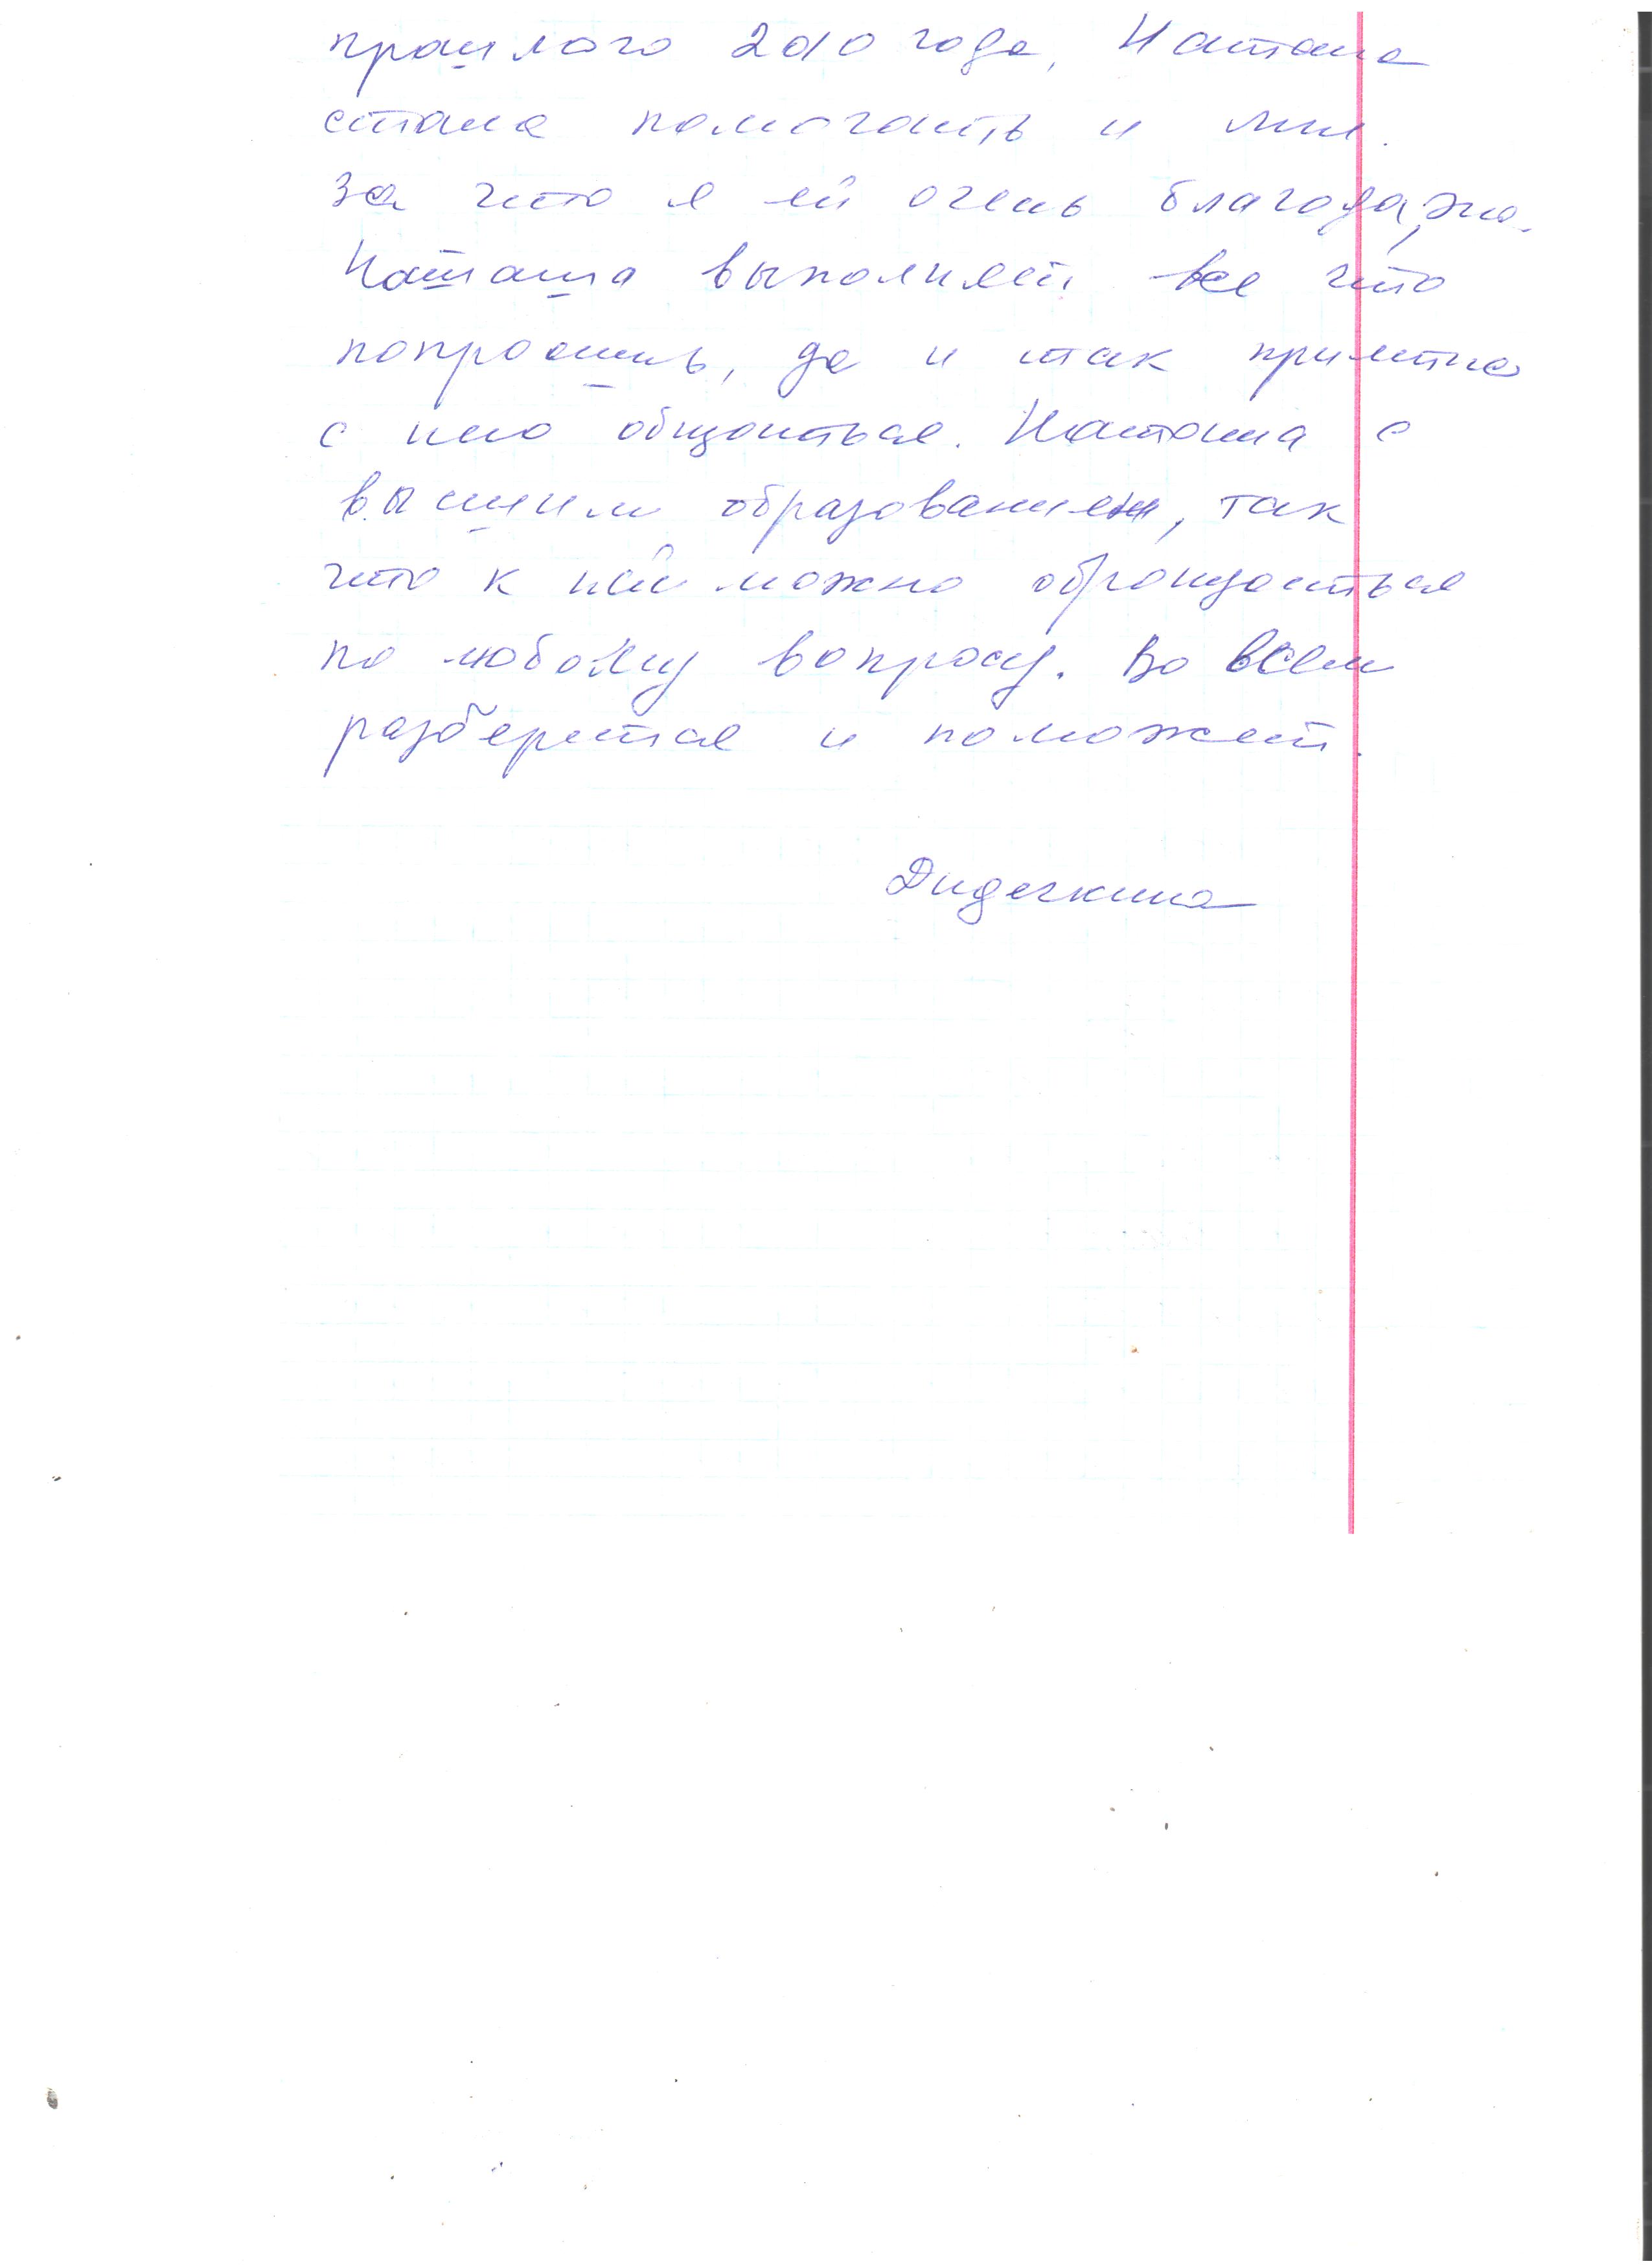 прошлого 2010 года, Наташа
стала помогать и мне.
За что я ей очень благодарна.
Наташа выполняет все что
попросишь, да и так приятно
с нею общаться. Наташа с
высшим образованием, так
что к ней можно обращаться
по любому вопросу. Во всем
разберется и поможет.
Дидечкина